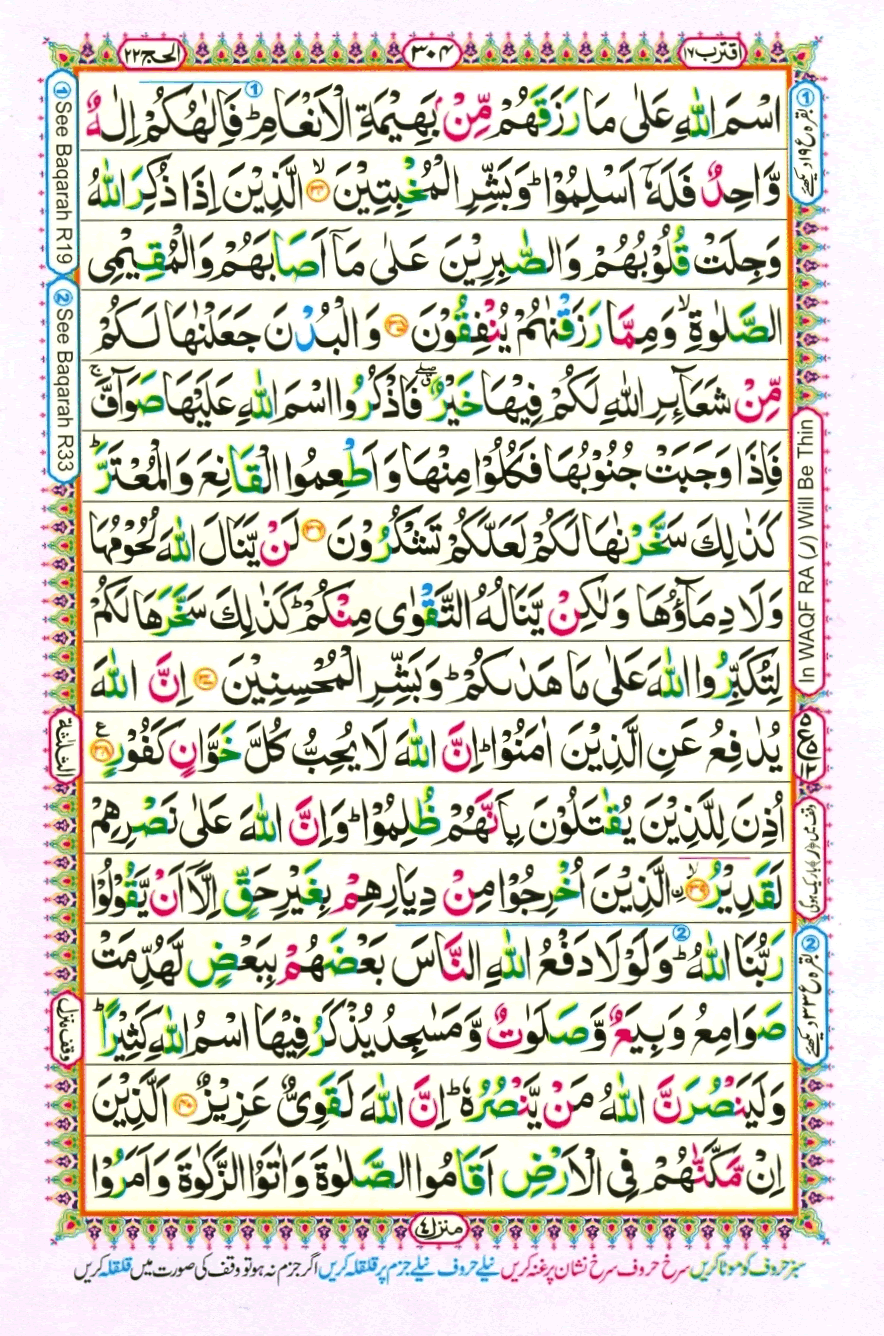 اقترب ۱۷
۳۰۴
الحج ۲۲
اسْمَ اللّٰهِ عَلٰى مَا رَزَقَهُمْ مِّنْۢ بَهِیْمَةِ الْاَنْعَامِ ؕ فَاِلٰهُكُمْ اِلٰهٌ
وَّاحِدٌ فَلَهٗۤ اَسْلِمُوْا ؕ وَبَشِّرِ الْمُخْبِتِیْنَ ۙ۳۴ الَّذِیْنَ اِذَا ذُكِرَ اللّٰهُ
وَجِلَتْ قُلُوْبُهُمْ وَالصّٰبِرِیْنَ عَلٰى مَاۤ اَصَابَهُمْ وَالْمُقِیْمِی
الصَّلٰوةِ ۙ وَمِمَّا رَزَقْنٰهُمْ یُنْفِقُوْنَ ۳۵ وَالْبُدْنَ جَعَلْنٰهَا لَكُمْ
مِّنْ شَعَآئِرِ اللّٰهِ لَكُمْ فِیْهَا خَیْرٌ ۖۗ فَاذْكُرُوا اسْمَ اللّٰهِ عَلَیْهَا صَوَآفَّ ۚ
فَاِذَا وَجَبَتْ جُنُوْبُهَا فَكُلُوْا مِنْهَا وَاَطْعِمُوا الْقَانِعَ وَالْمُعْتَرَّ ؕ
كَذٰلِكَ سَخَّرْنٰهَا لَكُمْ لَعَلَّكُمْ تَشْكُرُوْنَ ۳۶ لَنْ یَّنَالَ اللّٰهَ لُحُوْمُهَا
وَلَا دِمَآؤُهَا وَلٰكِنْ یَّنَالُهُ التَّقْوٰى مِنْكُمْ ؕ كَذٰلِكَ سَخَّرَهَا لَكُمْ
لِتُكَبِّرُوا اللّٰهَ عَلٰى مَا هَدٰىكُمْ ؕ وَبَشِّرِ الْمُحْسِنِیْنَ ۳۷ اِنَّ اللّٰهَ
یُدٰفِعُ عَنِ الَّذِیْنَ اٰمَنُوْا ؕ اِنَّ اللّٰهَ لَا یُحِبُّ كُلَّ خَوَّانٍ كَفُوْرٍ ۳۸ ع
اُذِنَ لِلَّذِیْنَ یُقٰتَلُوْنَ بِاَنَّهُمْ ظُلِمُوْا ؕ وَاِنَّ اللّٰهَ عَلٰى نَصْرِهِمْ
لَقَدِیْرُ ۙ۳۹ نِ الَّذِیْنَ اُخْرِجُوْا مِنْ دِیَارِهِمْ بِغَیْرِ حَقٍّ اِلَّاۤ اَنْ یَّقُوْلُوْا
رَبُّنَا اللّٰهُ ؕ وَلَوْلَا دَفْعُ اللّٰهِ النَّاسَ بَعْضَهُمْ بِبَعْضٍ لَّهُدِّمَتْ
صَوَامِعُ وَبِیَعٌ وَّصَلَوٰتٌ وَّمَسٰجِدُ یُذْكَرُ فِیْهَا اسْمُ اللّٰهِ كَثِیْرًا ؕ
وَلَیَنْصُرَنَّ اللّٰهُ مَنْ یَّنْصُرُهٗ ؕ اِنَّ اللّٰهَ لَقَوِیٌّ عَزِیْزٌ ۴۰ اَلَّذِیْنَ
اِنْ مَّكَّنّٰهُمْ فِی الْاَرْضِ اَقَامُوا الصَّلٰوةَ وَاٰتَوُا الزَّكٰوةَ وَاَمَرُوْا
① بقرہ ع ۱۹ دیکھئے
In WAQF RA (ر) Will Be Thin
② بقرہ ع ۳۳ دیکھئے
① See Baqarah R19
② See Baqarah R33
الثلثة
وقف منزل
منزل ٤
سبز حروف کو موٹا کریں سرخ حروف سرخ نشان پر غنہ کریں نیلے حروف نیلے جزم پر قلقلہ کریں اگر جزم نہ ہو تو وقف کی صورت میں قلقلہ کریں